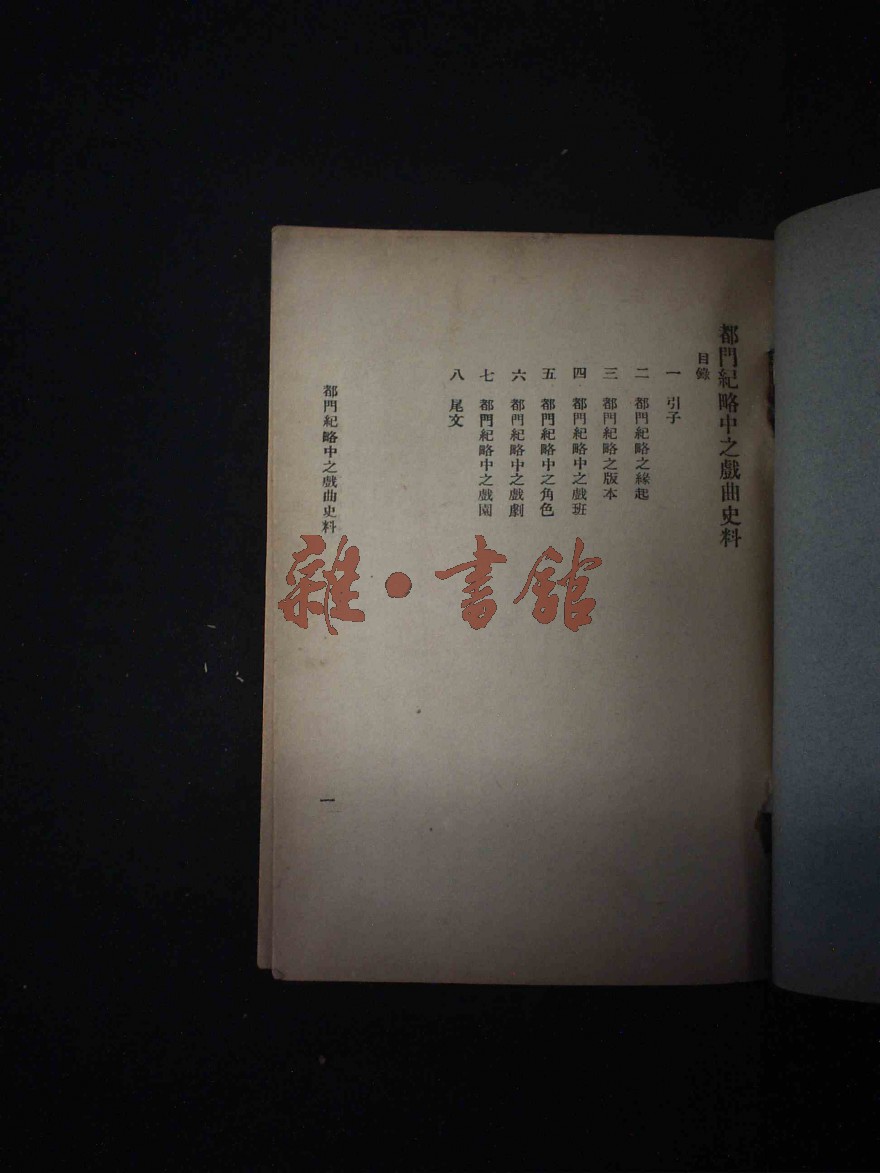 都門紀略中之戲曲史料
目錄
一 引子
二 都門紀略之緣起
三 都門紀略之版本
四 都門紀略中之戲班
五 都門紀略中之角色
六 都門紀略中之戲劇
七 都門紀略中之戲園
八 尾文
都門紀略中之戲曲史料
一
雜·書館